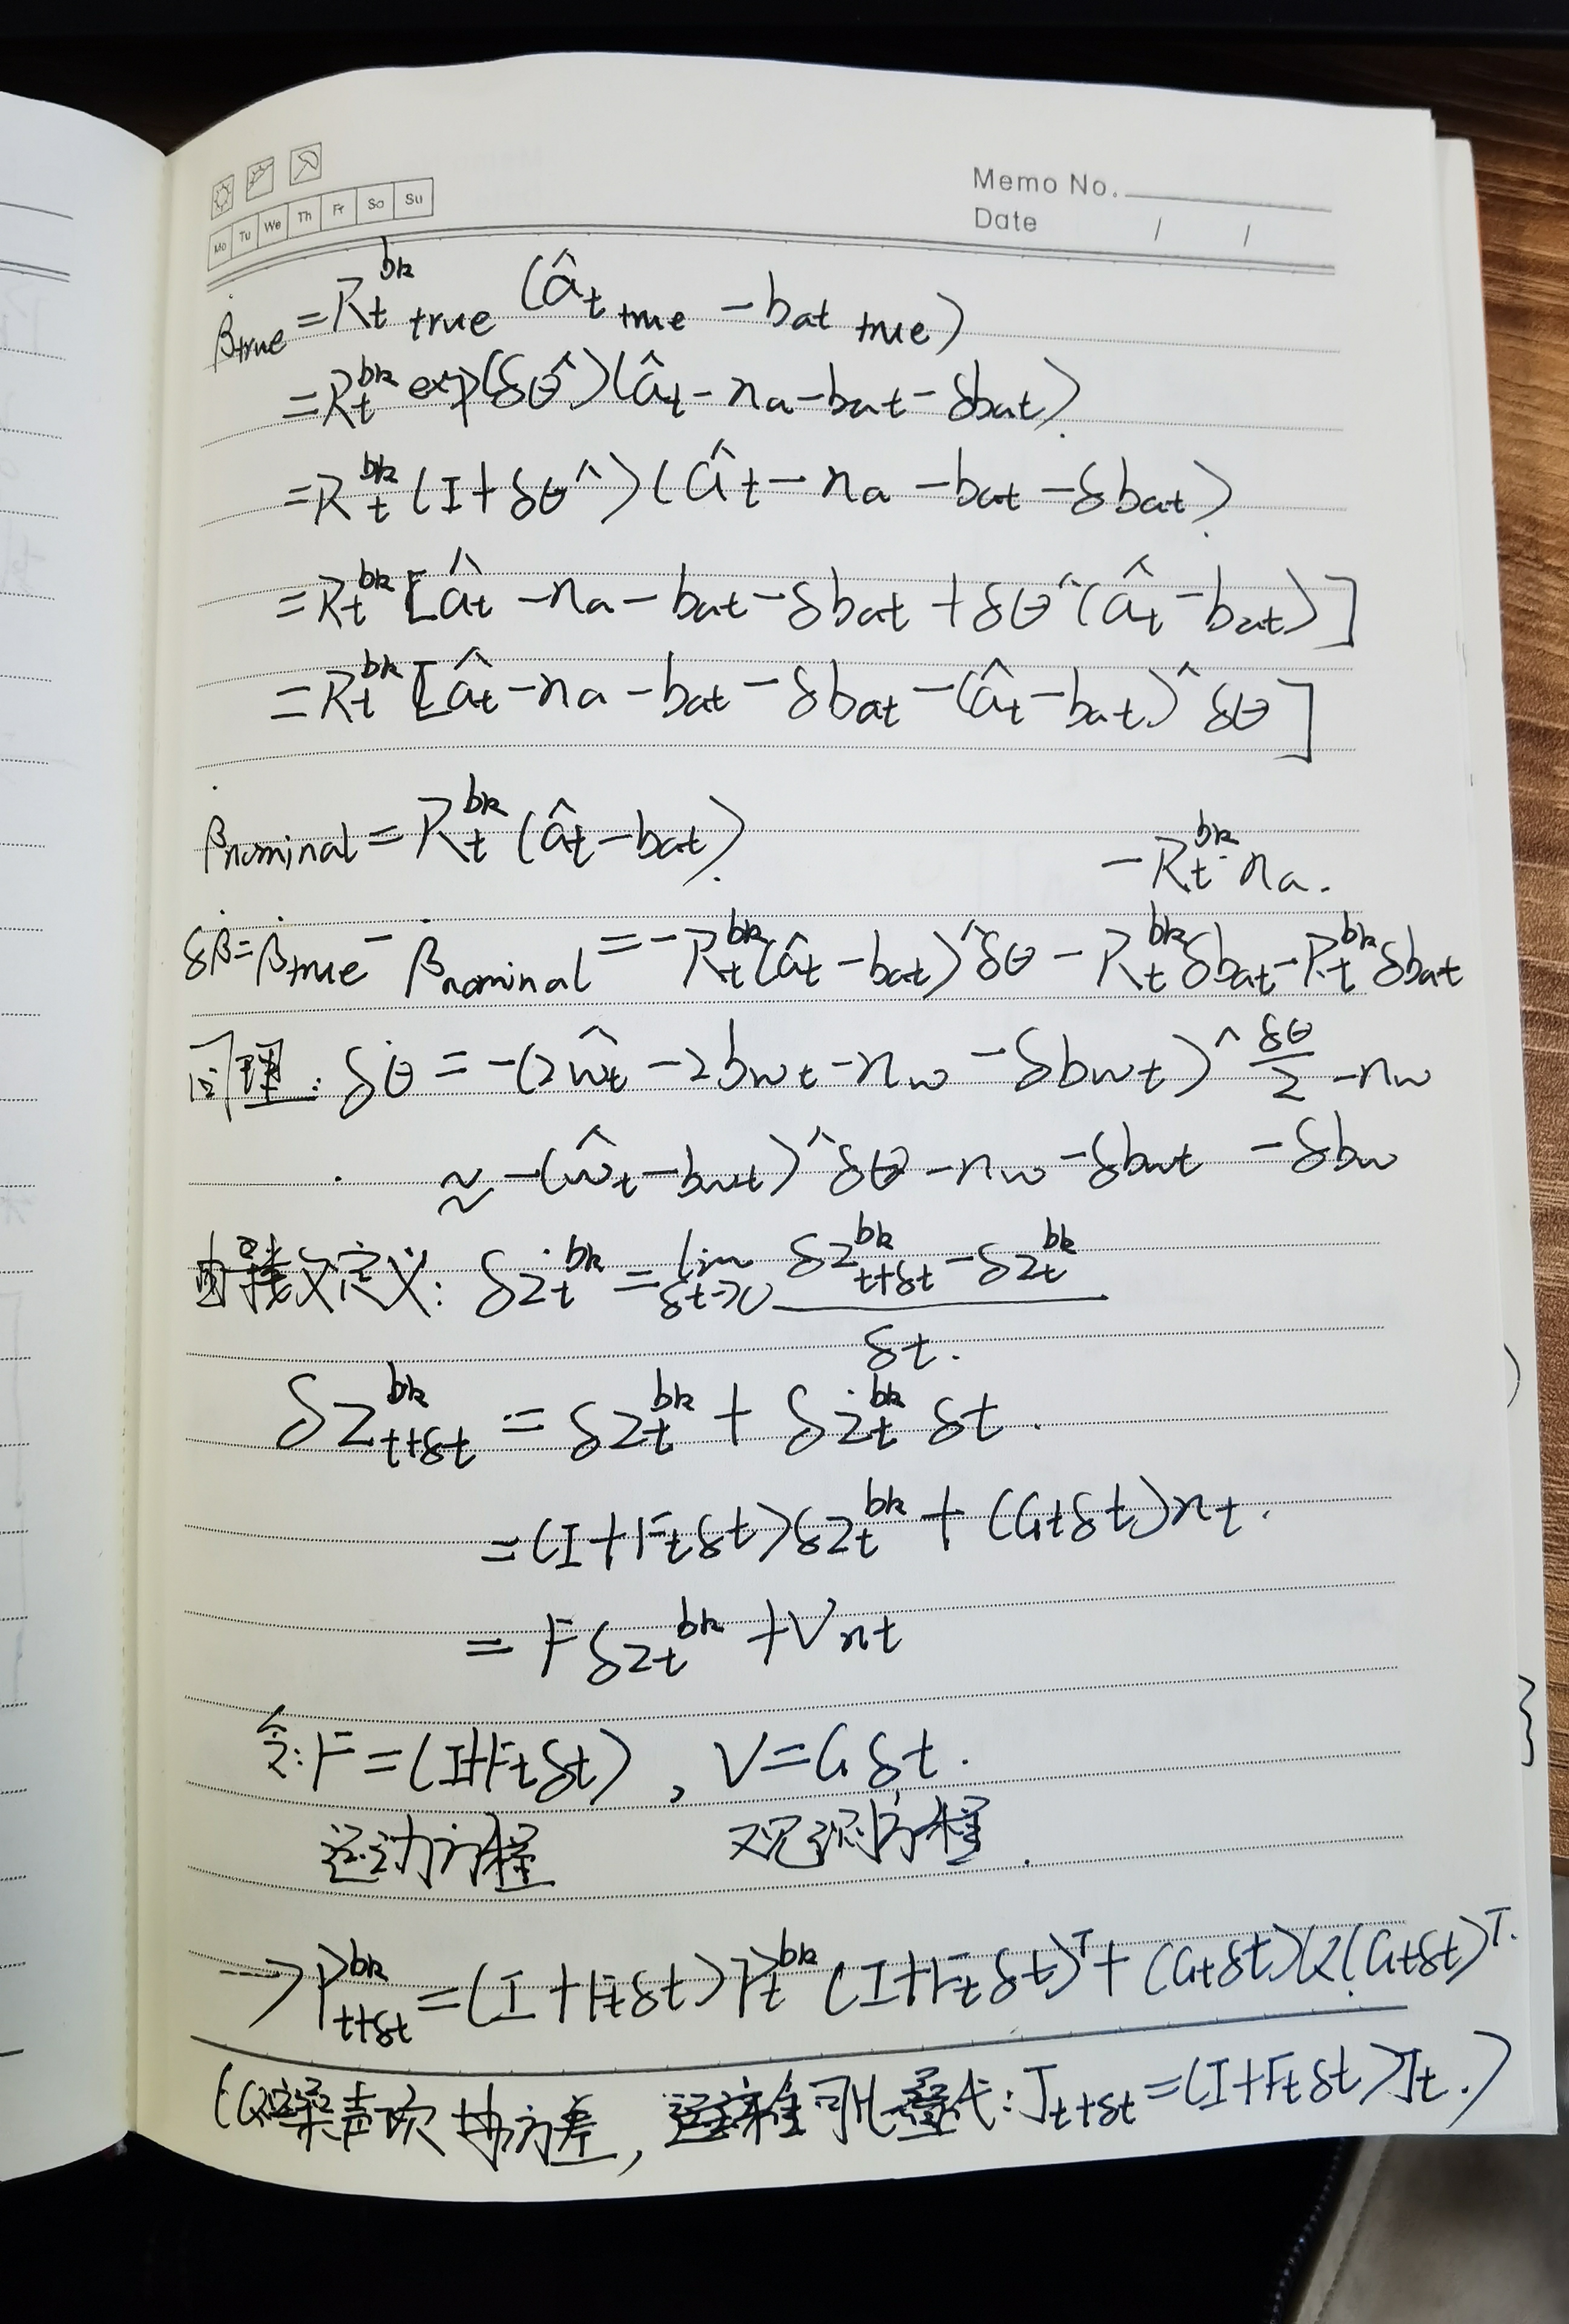 Memo No.
Date / /
Mo Tu We Th Fr Sa Su
β̇true = R_t^{bk} true (â_t true − b_at true)
= R_t^{bk} exp(δθ^)(â_t − n_a − b_at − δb_at)
= R_t^{bk} (I + δθ^)(â_t − n_a − b_at − δb_at)
= R_t^{bk} [â_t − n_a − b_at − δb_at + δθ^(â_t − b_at)]
= R_t^{bk} [â_t − n_a − b_at − δb_at − (â_t − b_at)^ δθ]
β̇nominal = R_t^{bk} (â_t − b_at)
− R_t^{bk} n_a.
δβ̇ = β̇true − β̇nominal = − R_t^{bk} (â_t − b_at)^ δθ − R_t^{bk} δb_at − R_t^{bk} δb_at
同理: δθ̇ = −(2ŵ_t − 2b_wt − n_w − δb_wt)^ δθ/2 − n_w
≈ −(ŵ_t − b_wt)^ δθ − n_w − δb_wt − δb_w
由导数定义: δż_t^{bk} = lim δt→0 (δz_{t+δt}^{bk} − δz_t^{bk}) / δt.
δz_{t+δt}^{bk} = δz_t^{bk} + δż_t^{bk} δt.
= (I + F_t δt) δz_t^{bk} + (G_t δt) n_t.
= F δz_t^{bk} + V n_t
令: F = (I + F_t δt) , V = G δt.
运动方程 观测方程.
→ P_{t+δt}^{bk} = (I + F_t δt) P_t^{bk} (I + F_t δt)^T + (G_t δt) Q (G_t δt)^T.
(Q噪声项协方差, 雅可比迭代: J_{t+δt} = (I + F_t δt) J_t.)